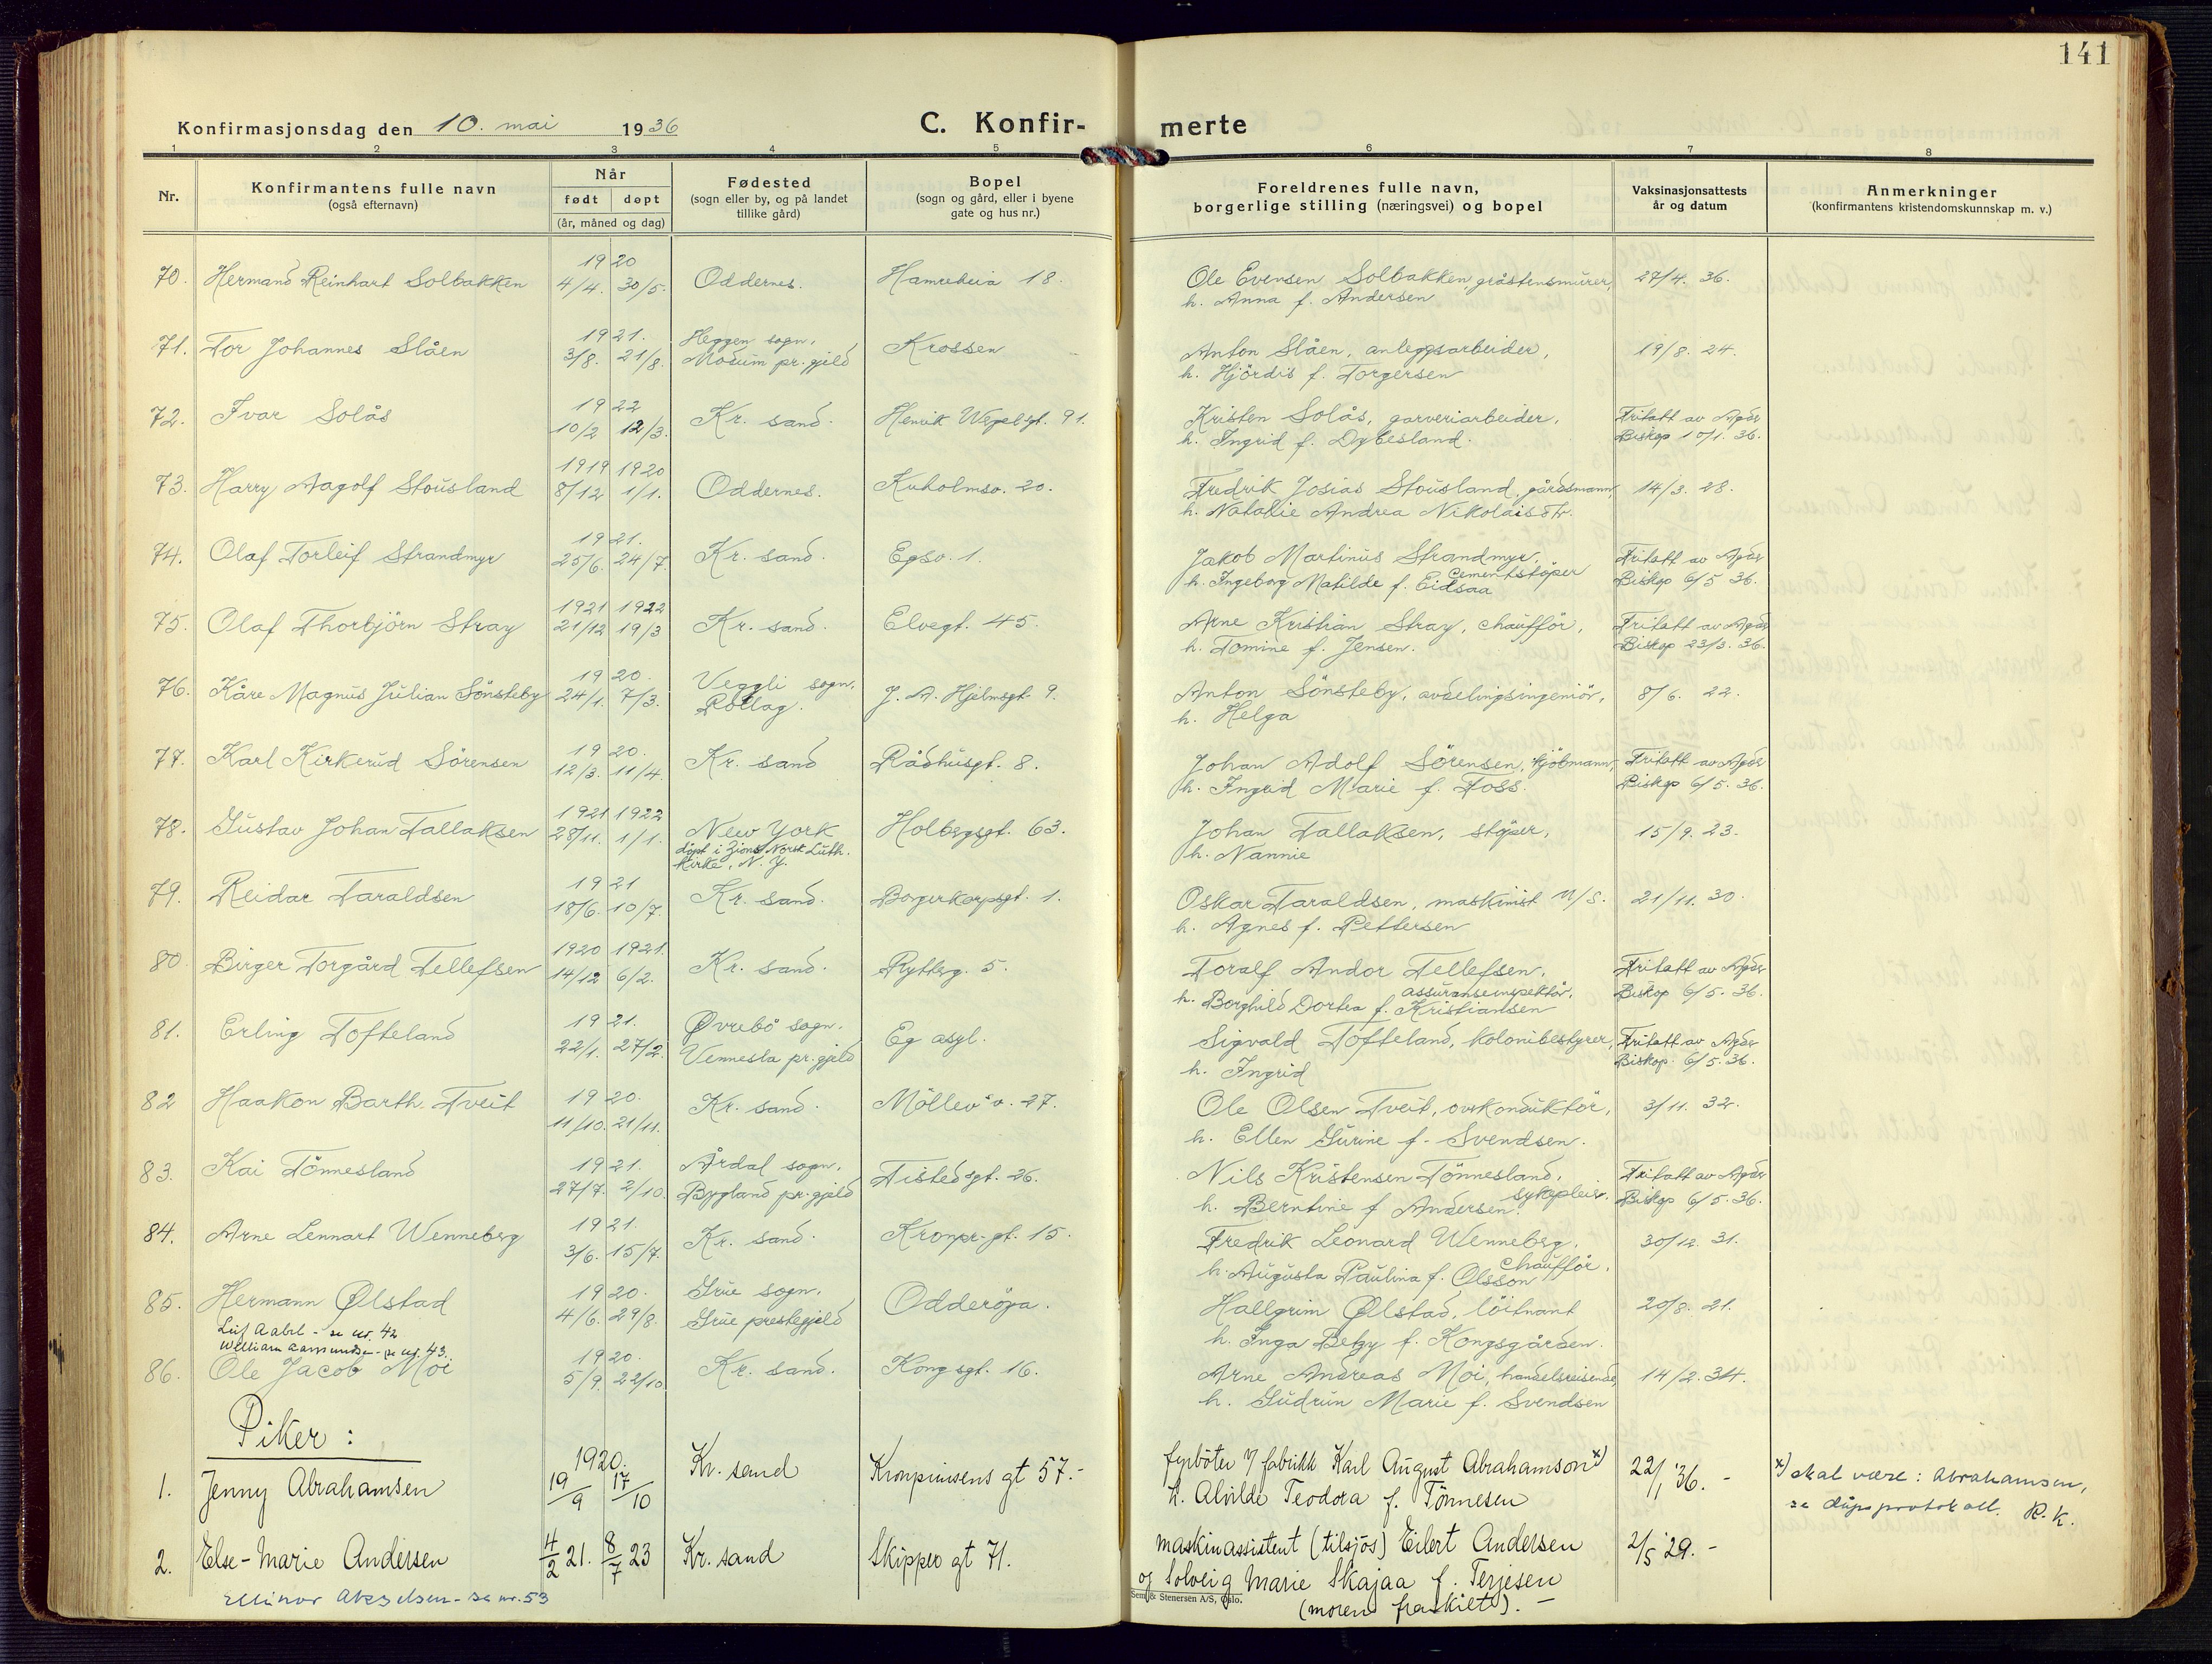 141
Konfirmasjonsdag den 10. mai 1936
C. Konfir- merte
1 2 3 4 5 6 7 8
Nr.
Konfirmantens fulle navn
(også efternavn)
Når
født døpt
(år, måned og dag)
Fødested
(sogn eller by, og på landet
tillike gård)
Bopel
(sogn og gård, eller i byene
gate og hus nr.)
Foreldrenes fulle navn,
borgerlige stilling (næringsvei) og bopel
Vaksinasjonsattests
år og datum
Anmerkninger
(konfirmantens kristendomskunnskap m. v.)
1920
70. Hermand Reinhart Solbakken 4/4. 30/5. Oddernes. Hamreheia 18. Ole Evensen Solbakken, gråstensmurer, 27/4. 36.
h. Anna f. Andersen
1921. Heggen sogn,
71. Tor Johannes Slåen 3/8. 21/8. Modum pr.gjeld Krossen Anton Slåen, anleggsarbeider, 19/8. 24.
h. Hjördis f. Torgersen
1922
72. Ivar Solås 10/2 12/3. Kr. sand. Henrik Wergelsgt. 91. Kristen Solås, garveriarbeider, Fritatt av Agder
h. Ingrid f. Dybesland. Biskop 10/1. 36.
1919 1920
73. Harry Aagolf Stousland 8/12 1/1. Oddernes. Kuholmsv. 20. Fredrik Josias Stousland, gårdsmann, 14/3. 28.
h. Natalie Andrea Nikolaisdtr.
1921.
74. Olaf Torleif Strandmyr 25/6. 24/7. Kr. sand. Egsv. 1. Jakob Martinus Strandmyr, Fritatt av Agder
cementstöper
h. Ingeborg Matilde f. Eidsaa Biskop 6/5 36.
1921 1922
75. Olaf Thorbjörn Stray 21/12 19/3 Kr. sand. Elvegt. 45. Arne Kristian Stray, chaufför, Fritatt av Agder
h. Tomine f. Jensen. Biskop 23/3. 36.
1920. Veggli sogn,
76. Kåre Magnus Julian Sönsteby 24/1. 7/3. Rollag. J. A. Hjelmsgt. 9. Anton Sönsteby, avdelingsingeniör, 8/6. 22.
h. Helga
1920.
77. Karl Kirkerud Sörensen 12/3. 11/4. Kr. sand Rådhusgt. 8. Johan Adolf Sörensen, kjöbmann, Fritatt av Agder
h. Ingrid Marie f. Foss. Biskop 6/5. 36.
1921 1922
78. Gustav Johan Tallaksen 28/11. 1/1. New York Holbergsgt. 63. Johan Tallaksen, stöper, 15/9. 23.
döpt i Zions Norsk Luth.
kirke, N. Y. h. Nannie
1921
79. Reidar Taraldsen 18/6. 10/7. Kr. sand. Borgerkorpsgt. 1. Oskar Taraldsen, maskinist M/S. 21/11. 30.
h. Agnes f. Pettersen
1920 1921.
80. Birger Torgård Tellefsen 14/12 6/2. Kr. sand. Rytterg. 5. Toralf Andor Tellefsen, Fritatt av Agder
assuranseinspektör,
h. Borghild Dortea f. Kristiansen Biskop 6/5. 36.
1921. Øvrebö sogn,
81. Erling Tofteland 22/1. 27/2. Vennesla pr.gjeld Eg asyl. Sigvald Tofteland, kolonibestyrer, Fritatt av Agder
h. Ingrid Biskop. 6/5. 36.
1920.
82 Haakon Barth Tveit 11/10. 21/11. Kr. sand. Möllev.v. 27. Ole Olsen Tveit, ovkonduktör, 3/11. 32.
h. Ellen Gurine f. Svendsen.
1921. Årdal sogn,
83. Kai Tönnesland 27/7. 2/10. Bygland pr.gjeld Tistedsgt. 26. Nils Kristensen Tönnesland, Fritatt av Agder
sykepleier.
h. Berntine f Andersen. Biskop 6/5. 36.
1921.
84. Arne Lennart Wenneberg 3/6. 15/7. Kr. sand. Kronpr.gt. 15. Fredrik Leonard Wenneberg, 30/12. 31.
chaufför.
h. Augusta Paulina f. Olsson
1920. Grue sogn,
85. Hermann Ølstad 4/6. 29/8. Grue prestegjeld Odderöya. Hallgrim Ølstad, löitnant 20/8. 21.
h. Inga Betzy f. Kongsgården.
Leif Aabel - se nr. 42
William Aamundsen - se nr. 43.
1920.
86. Ole Jacob Moi 5/9. 22/10 Kr. sand. Kongsgt. 16. Arne Andreas Moi, handelsreisende, 14/2. 34.
h. Gudrun Marie f. Svendsen
Piker:
1920.
1. Jenny Abrahamsen 19/9 17/10 Kr. sand Kronprinsens gt 57.- fyrböter v/ fabrikk Karl August Abrahamson x) 22/1 '36. - x) skal være: Abrahamsen,
h. Alvilde Teodora f. Tönnesen se dåpsprotokoll. R. K.
2. Else-Marie Andersen 4/2 21. 8/7 23 Kr. sand Skipper gt 71. maskinassistent (tilsjös) Eilert Andersen 2/5 '29. -
og Solveig Marie Skajaa f. Terjesen
(moren fraskilt). -
Ellinor Akselsen - se nr. 53
Sem & Stenersen A/S, Oslo.